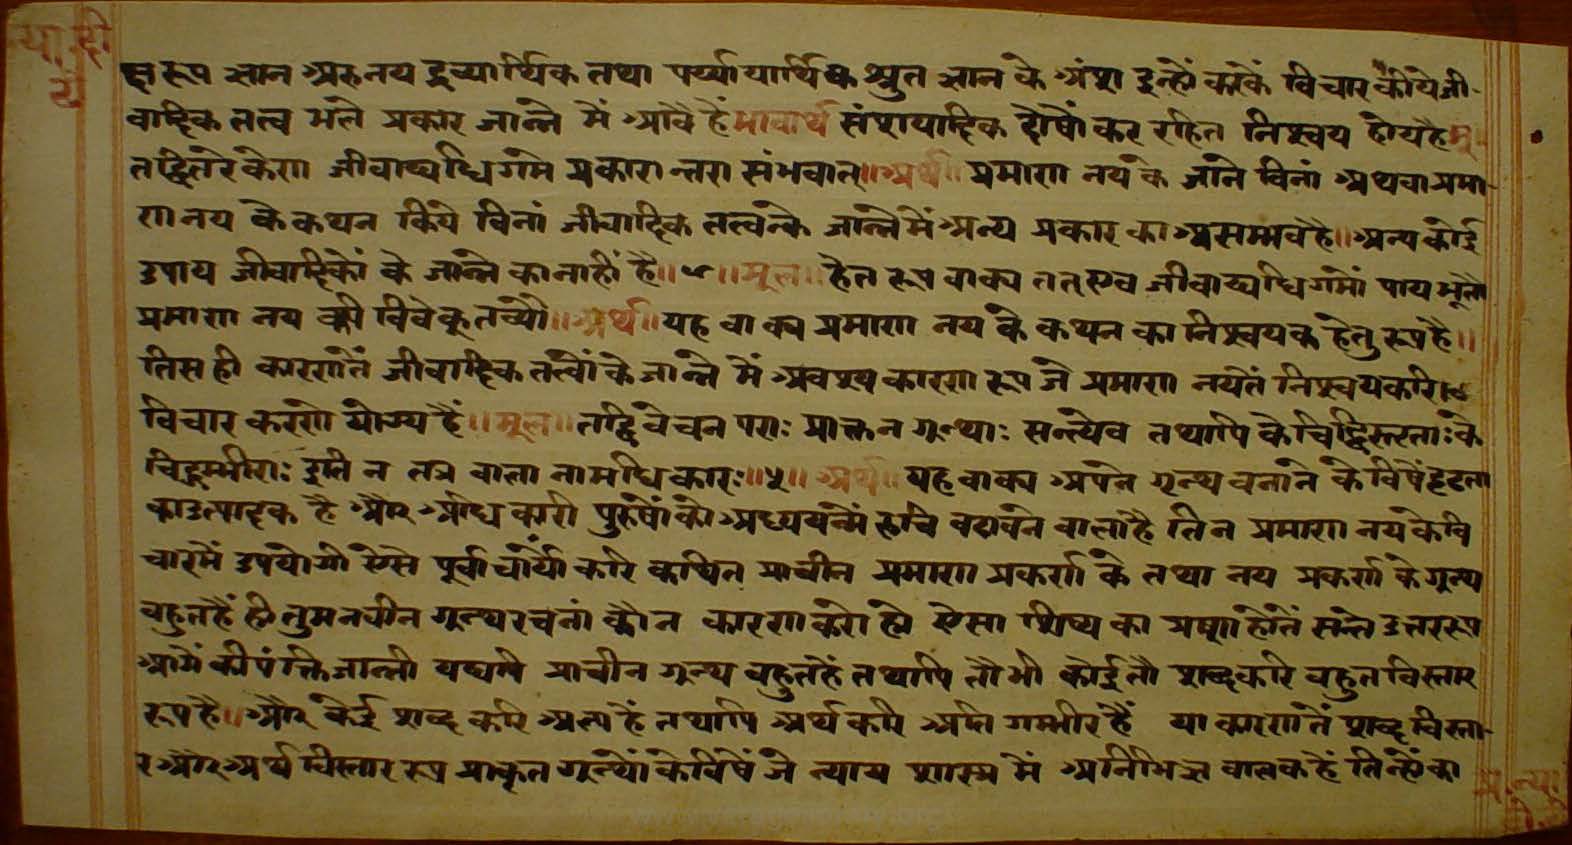 न्या. दी.
क्ष रूप ज्ञान अरु नय द्रव्यार्थिक तथा पर्य्यायार्थिक श्रुत ज्ञान के अंश इन्हों करकें विचार कीये जी-
वादिक तत्व भले प्रकार जान्ने में आवै हैं भावार्थ संशयादिक दोषों कर रहित निश्चय होय है मू.
तद्व्यतिरेकेण जीवाद्यधिगमे प्रकारान्तरा संभवात् ॥ अर्थ ॥ प्रमाण नय के जाने विनां अथवा प्रमा-
ण नय के कथन किये विनां जीवादिक तत्वन्के जान्ने में अन्य प्रकार का असम्भव है ॥ अन्य कोई
उपाय जीवादिकों के जान्ने का नाहीं है ॥ ४ ॥ मूल ॥ हेत रूप वाक्य तत् एव जीवाद्यधिगमों पाय भूतौ
प्रमाण नय वी विवेक्तव्यौ ॥ अर्थ ॥ यह वाक्य प्रमाण नय के कथन का निश्चयक हेतु रूप है ॥
तिस ही कारणतें जीवादिक तत्वों के जान्ने में अवश्य कारण रूप जे प्रमाण नयतें निश्चय करि
विचार करणे योग्य हैं ॥ मूल ॥ तद्विवेचन पराः प्राक्तन ग्रन्थाः सन्त्येव तथापि केचिद्विस्तरताः के
चिद्गम्भीराः इति न तत्र वाला नामधिकारः ॥ ५ ॥ अर्थ ॥ यह वाक्य अपने ग्रन्थ वनाने के विषें दृढता
का उत्पादक है और अधिकारी पुरुषों को अध्ययन्में रुचि वढावने वाला है तिन प्रमाण नय के वि
चारमें उपयोगी ऐसे पूर्वाचार्यों करि कथित प्राचीन प्रमाण प्रकर्ण के तथा नय प्रकर्ण के ग्रन्थ
वहुत हैं ही तुम नवीन ग्रन्थ रचनां कौन कारण करो हो ऐसा शिष्य का प्रश्न होतें सन्ते उत्तर रूप
आगें की पंक्ति जान्नी यद्यपि प्राचीन ग्रन्थ वहुत हैं तथापि तौभी कोई तौ शब्द करि वहुत विस्तार
रूप है ॥ और केई शब्द करि अल्प हैं तथापि अर्थ करि अति गम्भीर हैं या कारण तें शब्द विस्ता-
र और अर्थ विस्तार रूप प्राकृत ग्रन्थों के विषें जे न्याय शास्त्र में अनभिज्ञ वालक हैं तिन्हों का